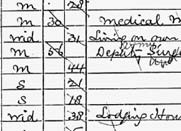 m 28
m 30 Medical M
wid 31 Living on own
m 56 Deputy
m 44
S 21
S 18
wid 38 Lodging Hou